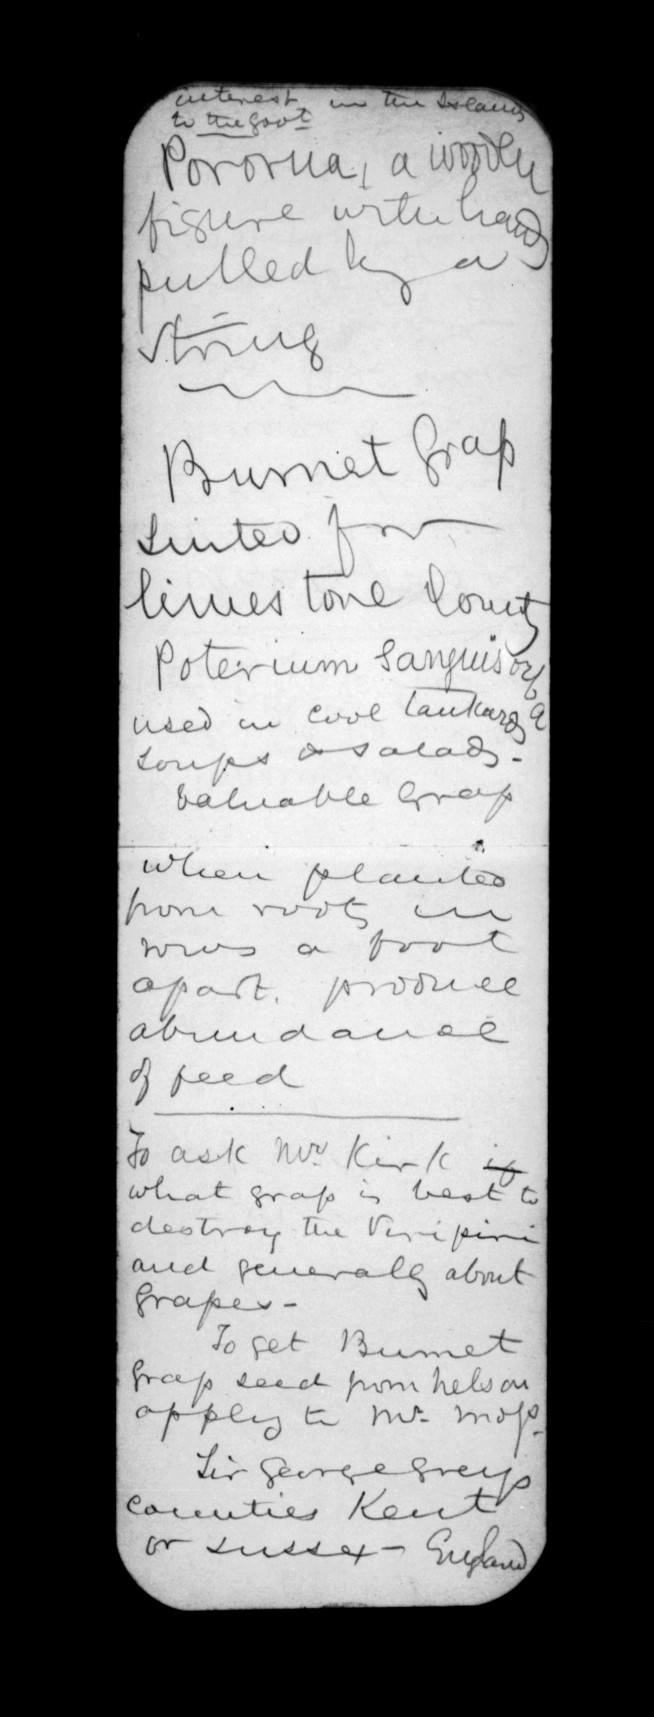 interest in the Islands
to the govt
Pororua, a wooden
figure with hands
pulled by a
string
Burnet Grass
suited for
limestone County
Poterium Sanguisorba
used in cool tankards
soups & salads -
Valuable Grass
when planted
from roots in
rows a foot
apart. produce
abundance
of feed
To ask Mr Kirk if
what grass is best to
destroy the Piripiri
and generally about
Grasses -
To get Burnet
grass seed from Nelson
apply to Mr Moss.
Sir George Greys
counties Kent
or Sussex - England